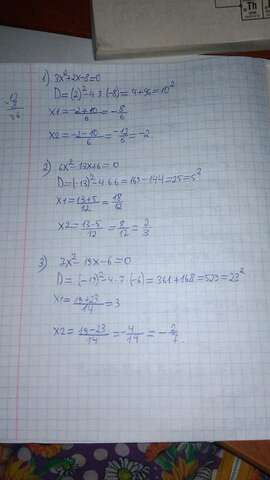 1) 3x²+2x-8=0
D=(2)²-4·3·(-8)=4+96=10²
x1=\frac{-2+10}{6}=-\frac{8}{6}
x2=\frac{-2-10}{6}=\frac{-12}{6}=-2
2) 6x²-13x+6=0
D=(-13)²-4·6·6=169-144=25=5²
x1=\frac{13+5}{12}=\frac{18}{12}
x2=\frac{13-5}{12}=\frac{8}{12}=\frac{2}{3}
3) 7x²-19x-6=0
D=(-19)²-4·7·(-6)=361+168=529=23²
x1=\frac{19+23}{14}=3
x2=\frac{19-23}{14}=\frac{-4}{14}=-\frac{2}{7}
Th